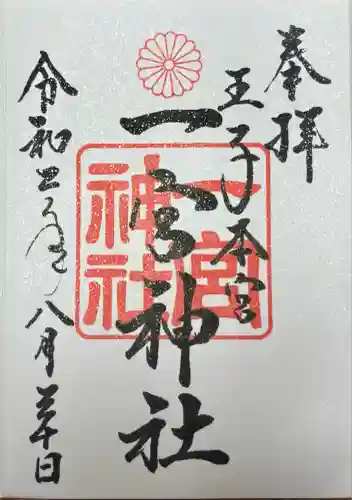 奉拝
王子本宮
一宮神社
一宮
神社
令和二年八月三十日